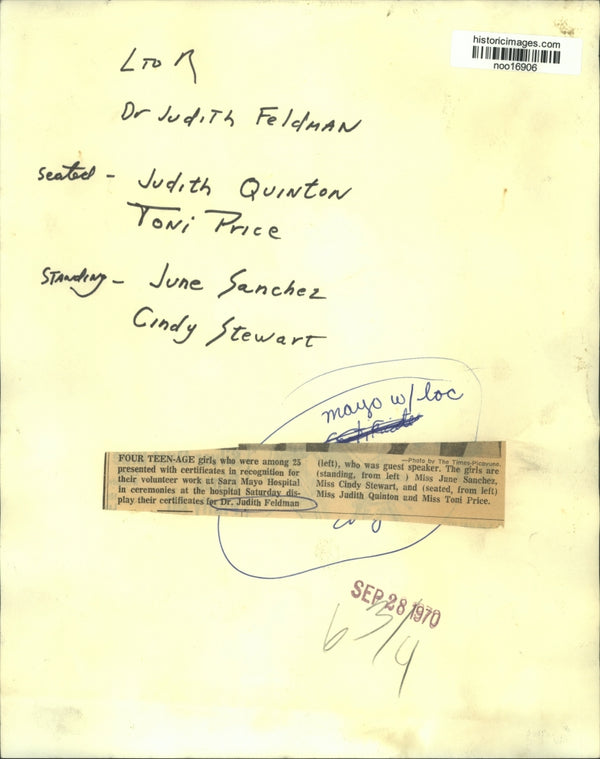 historicimages.com
noo16906
L to R
Dr Judith Feldman
seated - Judith Quinton
Toni Price
Standing - June Sanchez
Cindy Stewart
mayo w/loc
FOUR TEEN-AGE girls who were among 25
presented with certificates in recognition for
their volunteer work at Sara Mayo Hospital
in ceremonies at the hospital Saturday dis-
play their certificates for Dr. Judith Feldman
—Photo by The Times-Picayune.
(left), who was guest speaker. The girls are
(standing, from left ) Miss June Sanchez,
Miss Cindy Stewart, and (seated, from left)
Miss Judith Quinton and Miss Toni Price.
SEP 28 1970
6 3/4